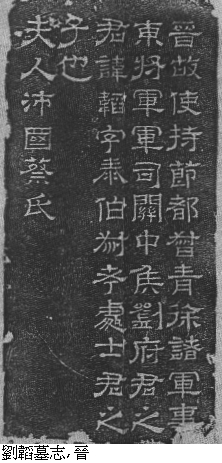 晉故使持節都督青徐諸軍事
東將軍軍司關中侯劉府君之
君諱韜字泰伯考處士君之
子也
夫人沛國蔡氏
劉韜墓志,晉